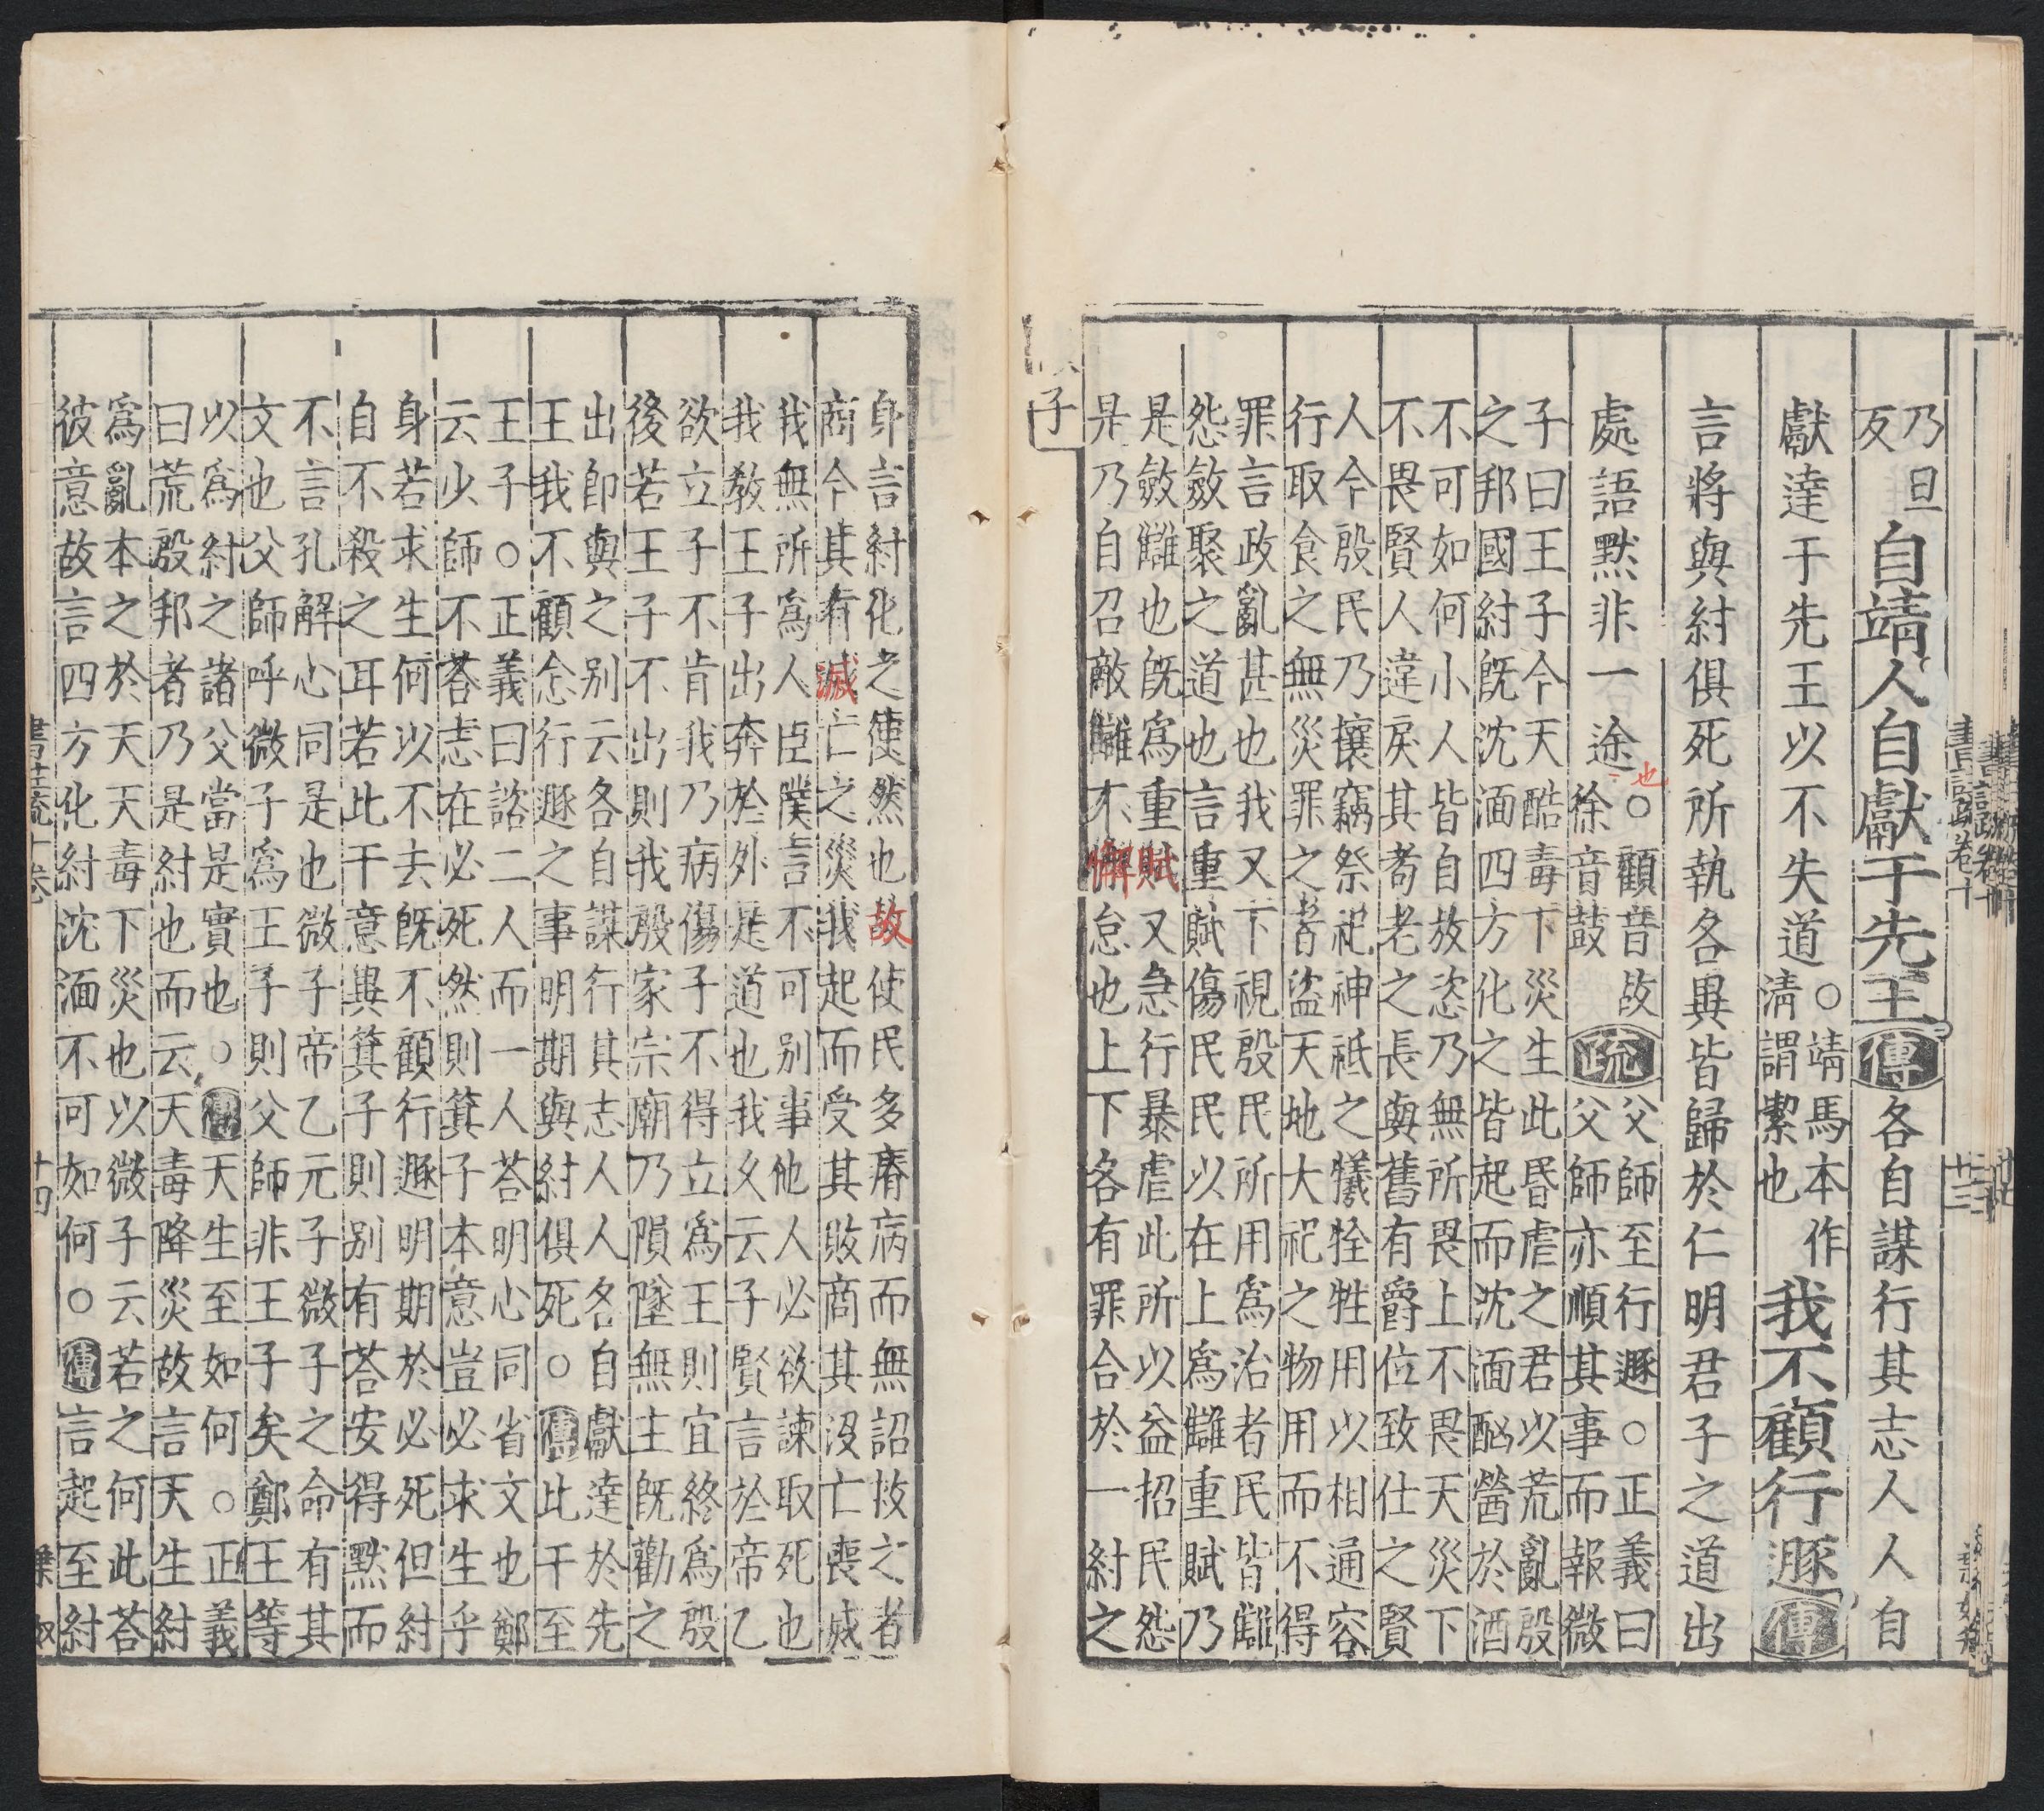 乃旦
反
自靖人自獻于先王傳各自謀行其志人人自
獻達于先王以不失道○靖馬本作
清謂絜也
我不顧行遯傳
言將與紂俱死所執各異皆歸於仁明君子之道出
處語默非一途也○顧音故
徐音鼓
疏父師至行遯○正義曰
父師亦順其事而報微
子曰王子今天酷毒下災生此昏虐之君以荒亂殷
之邦國紂既沈湎四方化之皆起而沈湎酗醟於酒
不可如何小人皆自放恣乃無所畏上不畏天災下
不畏賢人違戾其耇老之長與舊有爵位致仕之賢
人今殷民乃攘竊祭祀神祗之犧牷牲用以相通容
行取食之無災罪之者盜天地大祀之物用而不得
罪言政亂甚也我又下視殷民所用為治者民皆讎
怨斂聚之道也言重賦傷民民以在上為讎重賦乃
是斂讎也既為重賦又急行暴虐此所以益招民怨
是乃自召敵讎不懈怠也上下各有罪合於一紂之
子
身言紂化之使然也故使民多瘠病而無詔救之者
商今其有滅亡之災我起而受其敗商其沒亡喪滅
我無所為人臣僕言不可別事他人必欲諫取死也
我教王子出奔於外是道也我久云子賢言於帝乙
欲立子不肯我乃病傷子不得立為王則宜終為殷
後若王子不出則我殷家宗廟乃隕墜無主既勸之
出即與之別云各自謀行其志人人各自獻達於先
王我不顧念行遯之事明期與紂俱死○傳此干至
王子○正義曰諮二人而一人荅明心同省文也鄭
云少師不荅志在必死然則箕子本意豈必求生乎
身若求生何以不去既不顧行遯明期於必死但紂
自不殺之耳若此干意異箕子則別有荅安得默而
不言孔解心同是也微子帝乙元子微子之命有其
文也父師呼微子為王子則父師非王子矣鄭王等
以為紂之諸父當是實也○傳天生至如何○正義
曰荒殷邦者乃是紂也而云天毒降災故言天生紂
為亂本之於天天毒下災也以微子云若之何此荅
彼意故言四方化紂沈湎不可如何○傳言起至紂
書疏十卷
十四